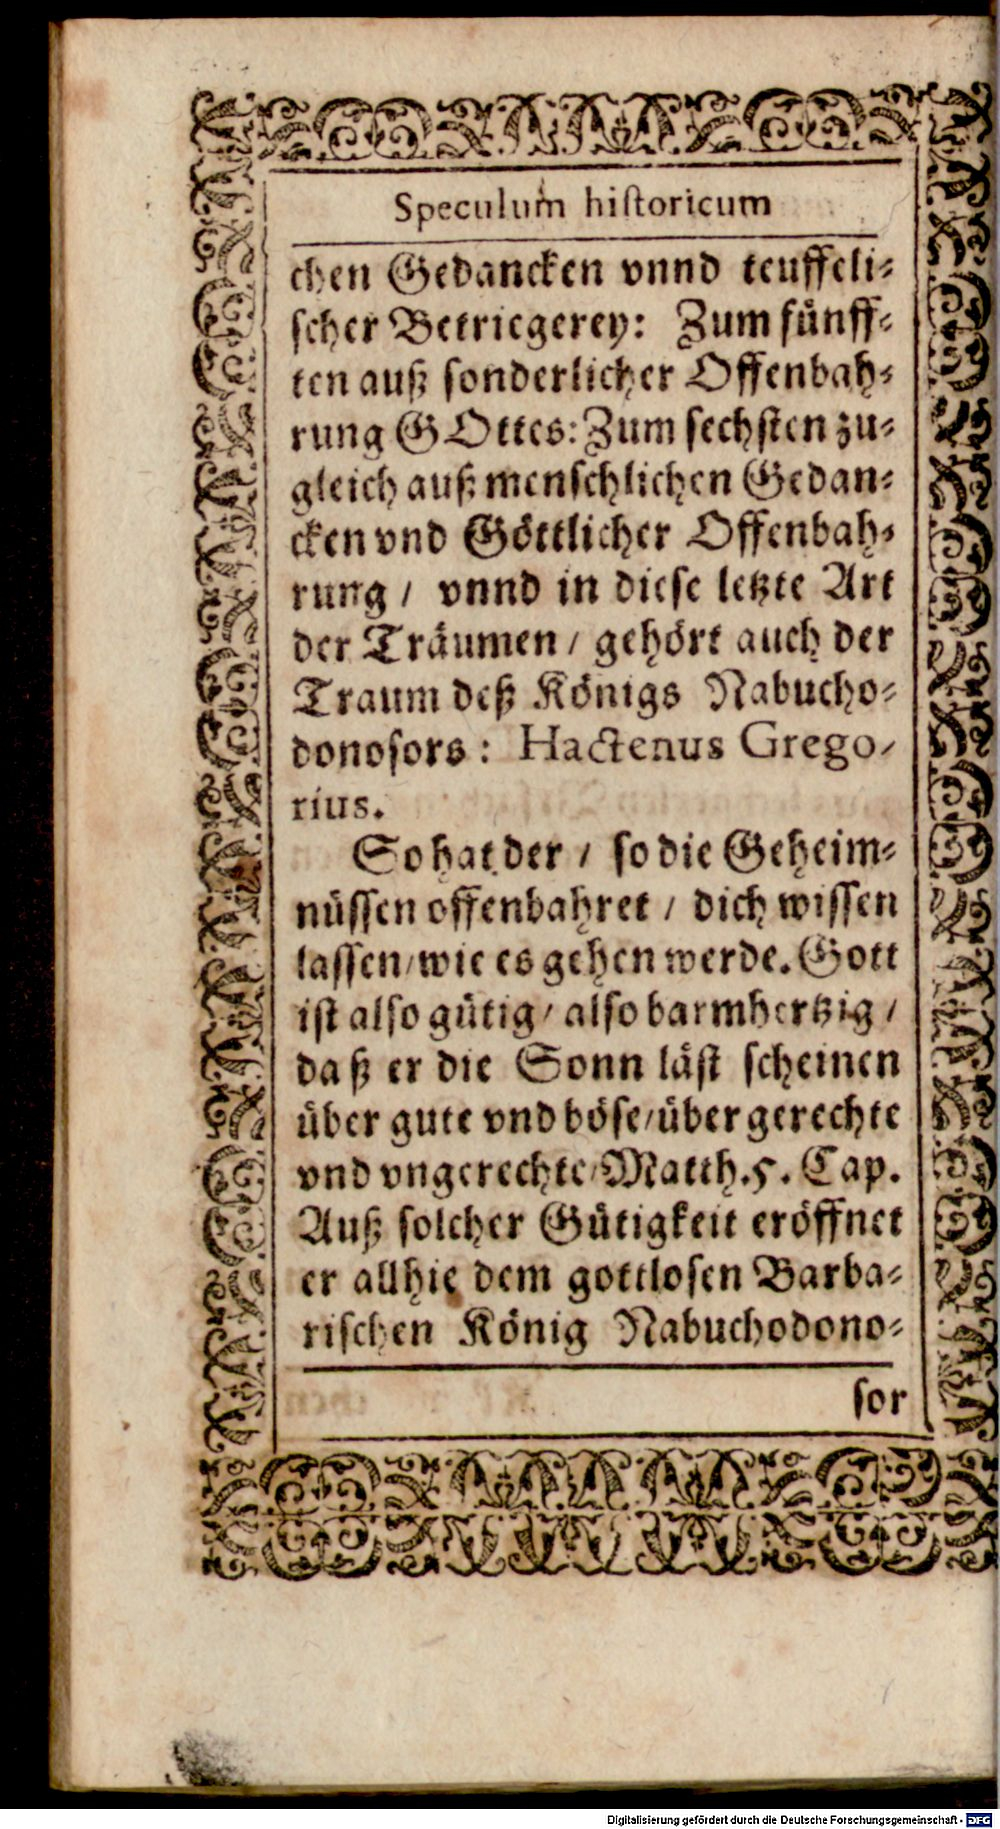 Speculum historicum
chen Gedancken vnnd teuffeli-
scher Betriegerey: Zum fünff-
ten auß sonderlicher Offenbah-
rung GOttes: Zum sechsten zu-
gleich auß menschlichen Gedan-
cken vnd Göttlicher Offenbah-
rung / vnnd in diese letzte Art
der Träumen / gehört auch der
Traum deß Königs Nabucho-
donosors: Hactenus Grego-
rius.
So hat der / so die Geheim-
nüssen offenbahret / dich wissen
lassen / wie es gehen werde. Gott
ist also gütig / also barmhertzig /
daß er die Sonn läst scheinen
über gute vnd böse / über gerechte
vnd vngerechte / Matth. 5. Cap.
Auß solcher Gütigkeit eröffnet
er allhie dem gottlosen Barba-
rischen König Nabuchodono-
sor
Digitalisierung gefördert durch die Deutsche Forschungsgemeinschaft - DFG